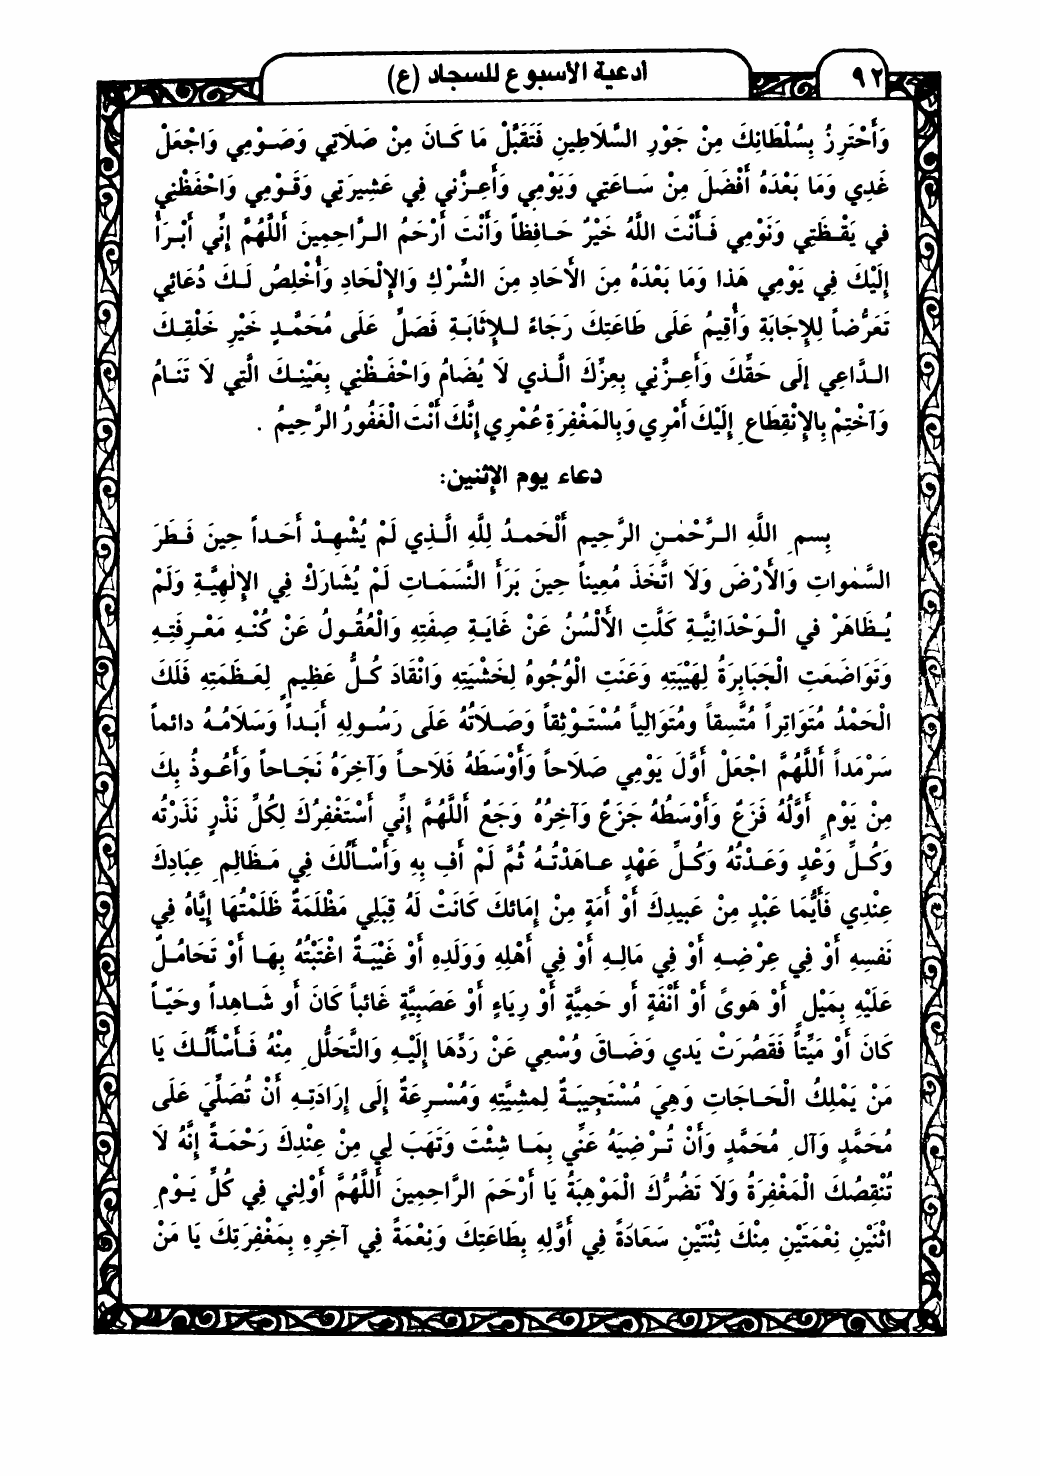 ٩٢
أدعية الأسبوع للسجاد (ع)
وَأَحْتَرِزُ بِسُلْطَانِكَ مِنْ جَوْرِ السَّلَاطِينِ فَتَقَبَّلْ مَا كَانَ مِنْ صَلَاتِي وَصَوْمِي وَاجْعَلْ
غَدِي وَمَا بَعْدَهُ أَفْضَلَ مِنْ سَاعَتِي وَيَوْمِي وَأَعِزَّنِي فِي عَشِيرَتِي وَقَوْمِي وَاحْفَظْنِي
فِي يَقْظَتِي وَنَوْمِي فَأَنْتَ اللَّهُ خَيْرٌ حَافِظاً وَأَنْتَ أَرْحَمُ الرَّاحِمِينَ أَللَّهُمَّ إِنِّي أَبْرَأُ
إِلَيْكَ فِي يَوْمِي هَذَا وَمَا بَعْدَهُ مِنَ الْأَحَادِ مِنَ الشِّرْكِ وَالإِلْحَادِ وَأُخْلِصُ لَكَ دُعَائِي
تَعَرُّضاً لِلإِجَابَةِ وَأُقِيمُ عَلَى طَاعَتِكَ رَجَاءً لِلإِثَابَةِ فَصَلِّ عَلَى مُحَمَّدٍ خَيْرِ خَلْقِكَ
الدَّاعِي إِلَى حَقِّكَ وَأَعِزَّنِي بِعِزِّكَ الَّذِي لَا يُضَامُ وَاحْفَظْنِي بِعَيْنِكَ الَّتِي لَا تَنَامُ
وَآخْتِمْ بِالإِنْقِطَاعِ إِلَيْكَ أَمْرِي وَبِالمَغْفِرَةِ عُمْرِي إِنَّكَ أَنْتَ الْغَفُورُ الرَّحِيمُ .
دعاء يوم الإثنين:
بِسمِ اللَّهِ الرَّحْمٰنِ الرَّحِيمِ أَلْحَمدُ لِلَّهِ الَّذِي لَمْ يُشْهِدْ أَحَداً حِينَ فَطَرَ
السَّمٰواتِ وَالْأَرْضَ وَلَا اتَّخَذَ مُعِيناً حِينَ بَرَأَ النَّسَمَاتِ لَمْ يُشَارَكْ فِي الإِلٰهِيَّةِ وَلَمْ
يُظَاهَرْ فِي الْوَحْدَانِيَّةِ كَلَّتِ الْأَلْسُنُ عَنْ غَايَةِ صِفَتِهِ وَالْعُقُولُ عَنْ كُنْهِ مَعْرِفَتِهِ
وَتَوَاضَعَتِ الْجَبَابِرَةُ لِهَيْبَتِهِ وَعَنَتِ الْوُجُوهُ لِخَشْيَتِهِ وَانْقَادَ كُلُّ عَظِيمٍ لِعَظَمَتِهِ فَلَكَ
الْحَمْدُ مُتَوَاتِراً مُتَّسِقاً ومُتَوَالِياً مُسْتَوْثِقاً وَصَلَاتُهُ عَلَى رَسُولِهِ أَبَداً وَسَلَامُهُ دائماً
سَرْمَداً أَللَّهُمَّ اجْعَلْ أَوَّلَ يَوْمِي صَلَاحاً وَأَوْسَطَهُ فَلَاحاً وَآخِرَهُ نَجَاحاً وَأَعُوذُ بِكَ
مِنْ يَوْمٍ أَوَّلُهُ فَزَعٌ وَأَوْسَطُهُ جَزَعٌ وَآخِرُهُ وَجَعٌ أَللَّهُمَّ إِنِّي أَسْتَغْفِرُكَ لِكُلِّ نَذْرٍ نَذَرْتُه
وَكُلِّ وَعْدٍ وَعَدْتُهُ وَكُلِّ عَهْدٍ عاهَدْتُهُ ثُمَّ لَمْ أَفِ بِهِ وَأَسْأَلُكَ فِي مَظَالِمِ عِبَادِكَ
عِنْدِي فَأَيُّمَا عَبْدٍ مِنْ عَبِيدِكَ أَوْ أَمَةٍ مِنْ إِمَائِكَ كَانَتْ لَهُ قِبَلِي مَظْلَمَةٌ ظَلَمْتُهَا إِيَّاهُ فِي
نَفسِهِ أَوْ فِي عِرْضِهِ أَوْ فِي مَالِهِ أَوْ فِي أَهْلِهِ وَوَلَدِهِ أَوْ غَيْبَةٌ اغْتَبْتُهُ بِهَا أَوْ تَحَامُلٌ
عَلَيْهِ بِمَيْلٍ أَوْ هَوىً أَوْ أَنْفَةٍ أَو حَمِيَّةٍ أَوْ رِيَاءٍ أَوْ عَصَبِيَّةٍ غَائباً كَانَ أَو شَاهِداً وحَيّاً
كَانَ أَوْ مَيِّتاً فَقَصُرَتْ يَدي وَضَاقَ وُسْعِي عَنْ رَدِّهَا إِلَيْهِ وَالتَّحَلُّلِ مِنْهُ فَأَسْأَلُكَ يَا
مَنْ يَمْلِكُ الْحَاجَاتِ وَهِيَ مُسْتَجِيبَةٌ لِمشِيَّتِهِ وَمُسْرِعَةٌ إِلَى إِرَادَتِهِ أَنْ تُصَلِّيَ عَلَى
مُحَمَّدٍ وَآلِ مُحَمَّدٍ وَأَنْ تُرْضِيَهُ عَنِّي بِمَا شِئْتَ وَتَهَبَ لِي مِنْ عِنْدِكَ رَحْمَةً إِنَّهُ لَا
تُنْقِصُكَ الْمَغْفِرَةُ وَلَا تَضُرُّكَ الْمَوْهِبَةُ يَا أَرْحَمَ الرَّاحِمِينَ أَللَّهُمَّ أَوْلِنِي فِي كُلِّ يَوْمِ
اثْنَيْنِ نِعْمَتَيْنِ مِنْكَ ثِنْتَيْنِ سَعَادَةً فِي أَوَّلِهِ بِطَاعَتِكَ وَنِعْمَةً فِي آخِرِهِ بِمَغْفِرَتِكَ يَا مَنْ